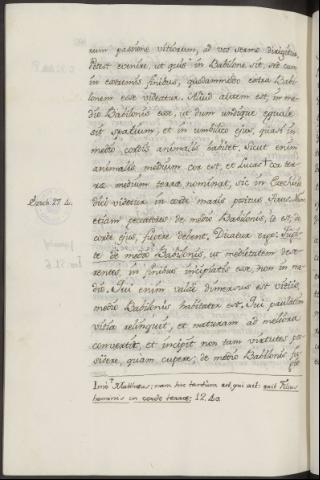 rum passione vitiorum, ad vos sermo dirigitur,
Potest evenire, ut quis in Babilone sit, sed cum
in extremis finibus, quodammodo extra Babi-
lonem esse videatur. Aliud autem est, in me-
dio Babilonis esse, ut dum undique equale
sit spatium, et in umbilico ejus, quasi in
medio cordis animalis habitet. Sicut enim
animalis medium cor est, et Lucas † cor ter-
rae medium terrae nominat, sic in Ezechiele
dici videtur in corde maris positus
Ezech. 27. 4.
etiam peccatores de medio Babilonis, id est, de
corde ejus, fugere debent. Dicatur ergo: Fugi-
te de medio Babilonis, ut medietatem dese-
rentes, in finibus incipiatis esse, non in me-
dio. Qui enim valde dimersus est vitiis,
medio Babilonis habitator est. Qui paulatim
vitia relinquit, et naturam ad meliora
convertit, et incipit non tam virtutes pos-
sidere, quam cupere; de medio Babilonis fu-
Imò Matthaeus; nam hic tantùm est qui ait: erit Filius
hominis in corde terrae; 12. 40.